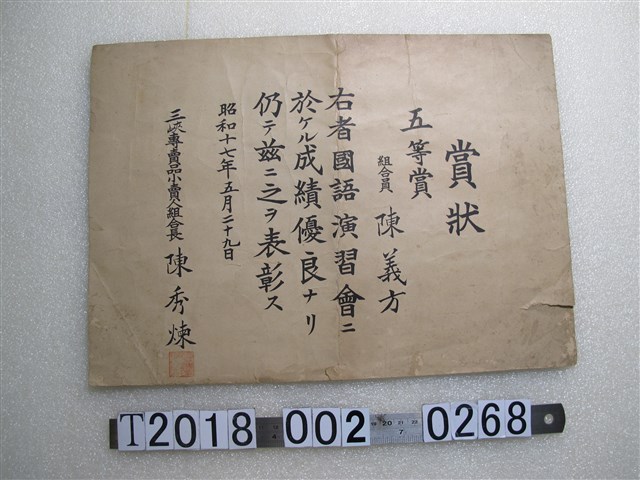 賞狀
五等賞
組合員 陳義方
右者國語演習會ニ
於ケル成績優良ナリ
仍テ茲ニ之ヲ表彰ス
昭和十七年五月二十九日
三峽專賣品小賣人組合長 陳秀煉
T2018 002 0268